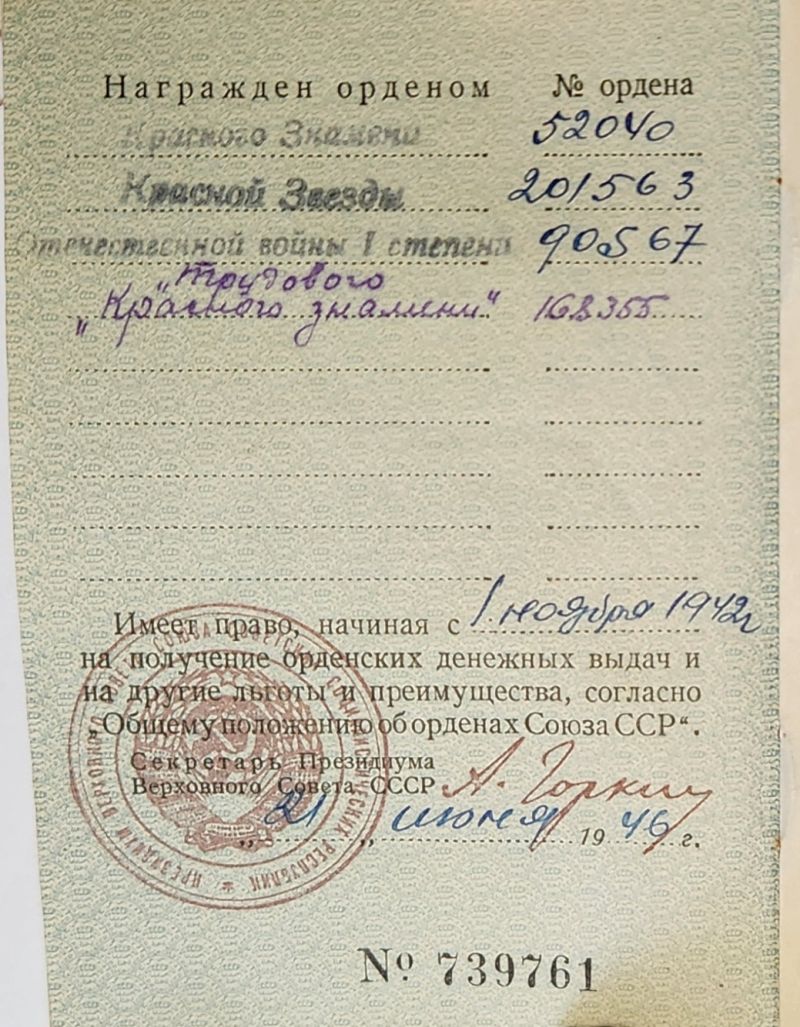 Награжден орденом № ордена
Красного Знамени 52040
Красной Звезды 201563
Отечественной войны I степени 90567
„Трудового
„Красного знамени" 168355
Имеет право, начиная с 1 ноября 1942г
на получение орденских денежных выдач и
на другие льготы и преимущества, согласно
„Общему положению об орденах Союза ССР“.
Секретарь Президиума
Верховного Совета СССР А. Горкин
„21„ июня 1946 г.
№ 739761